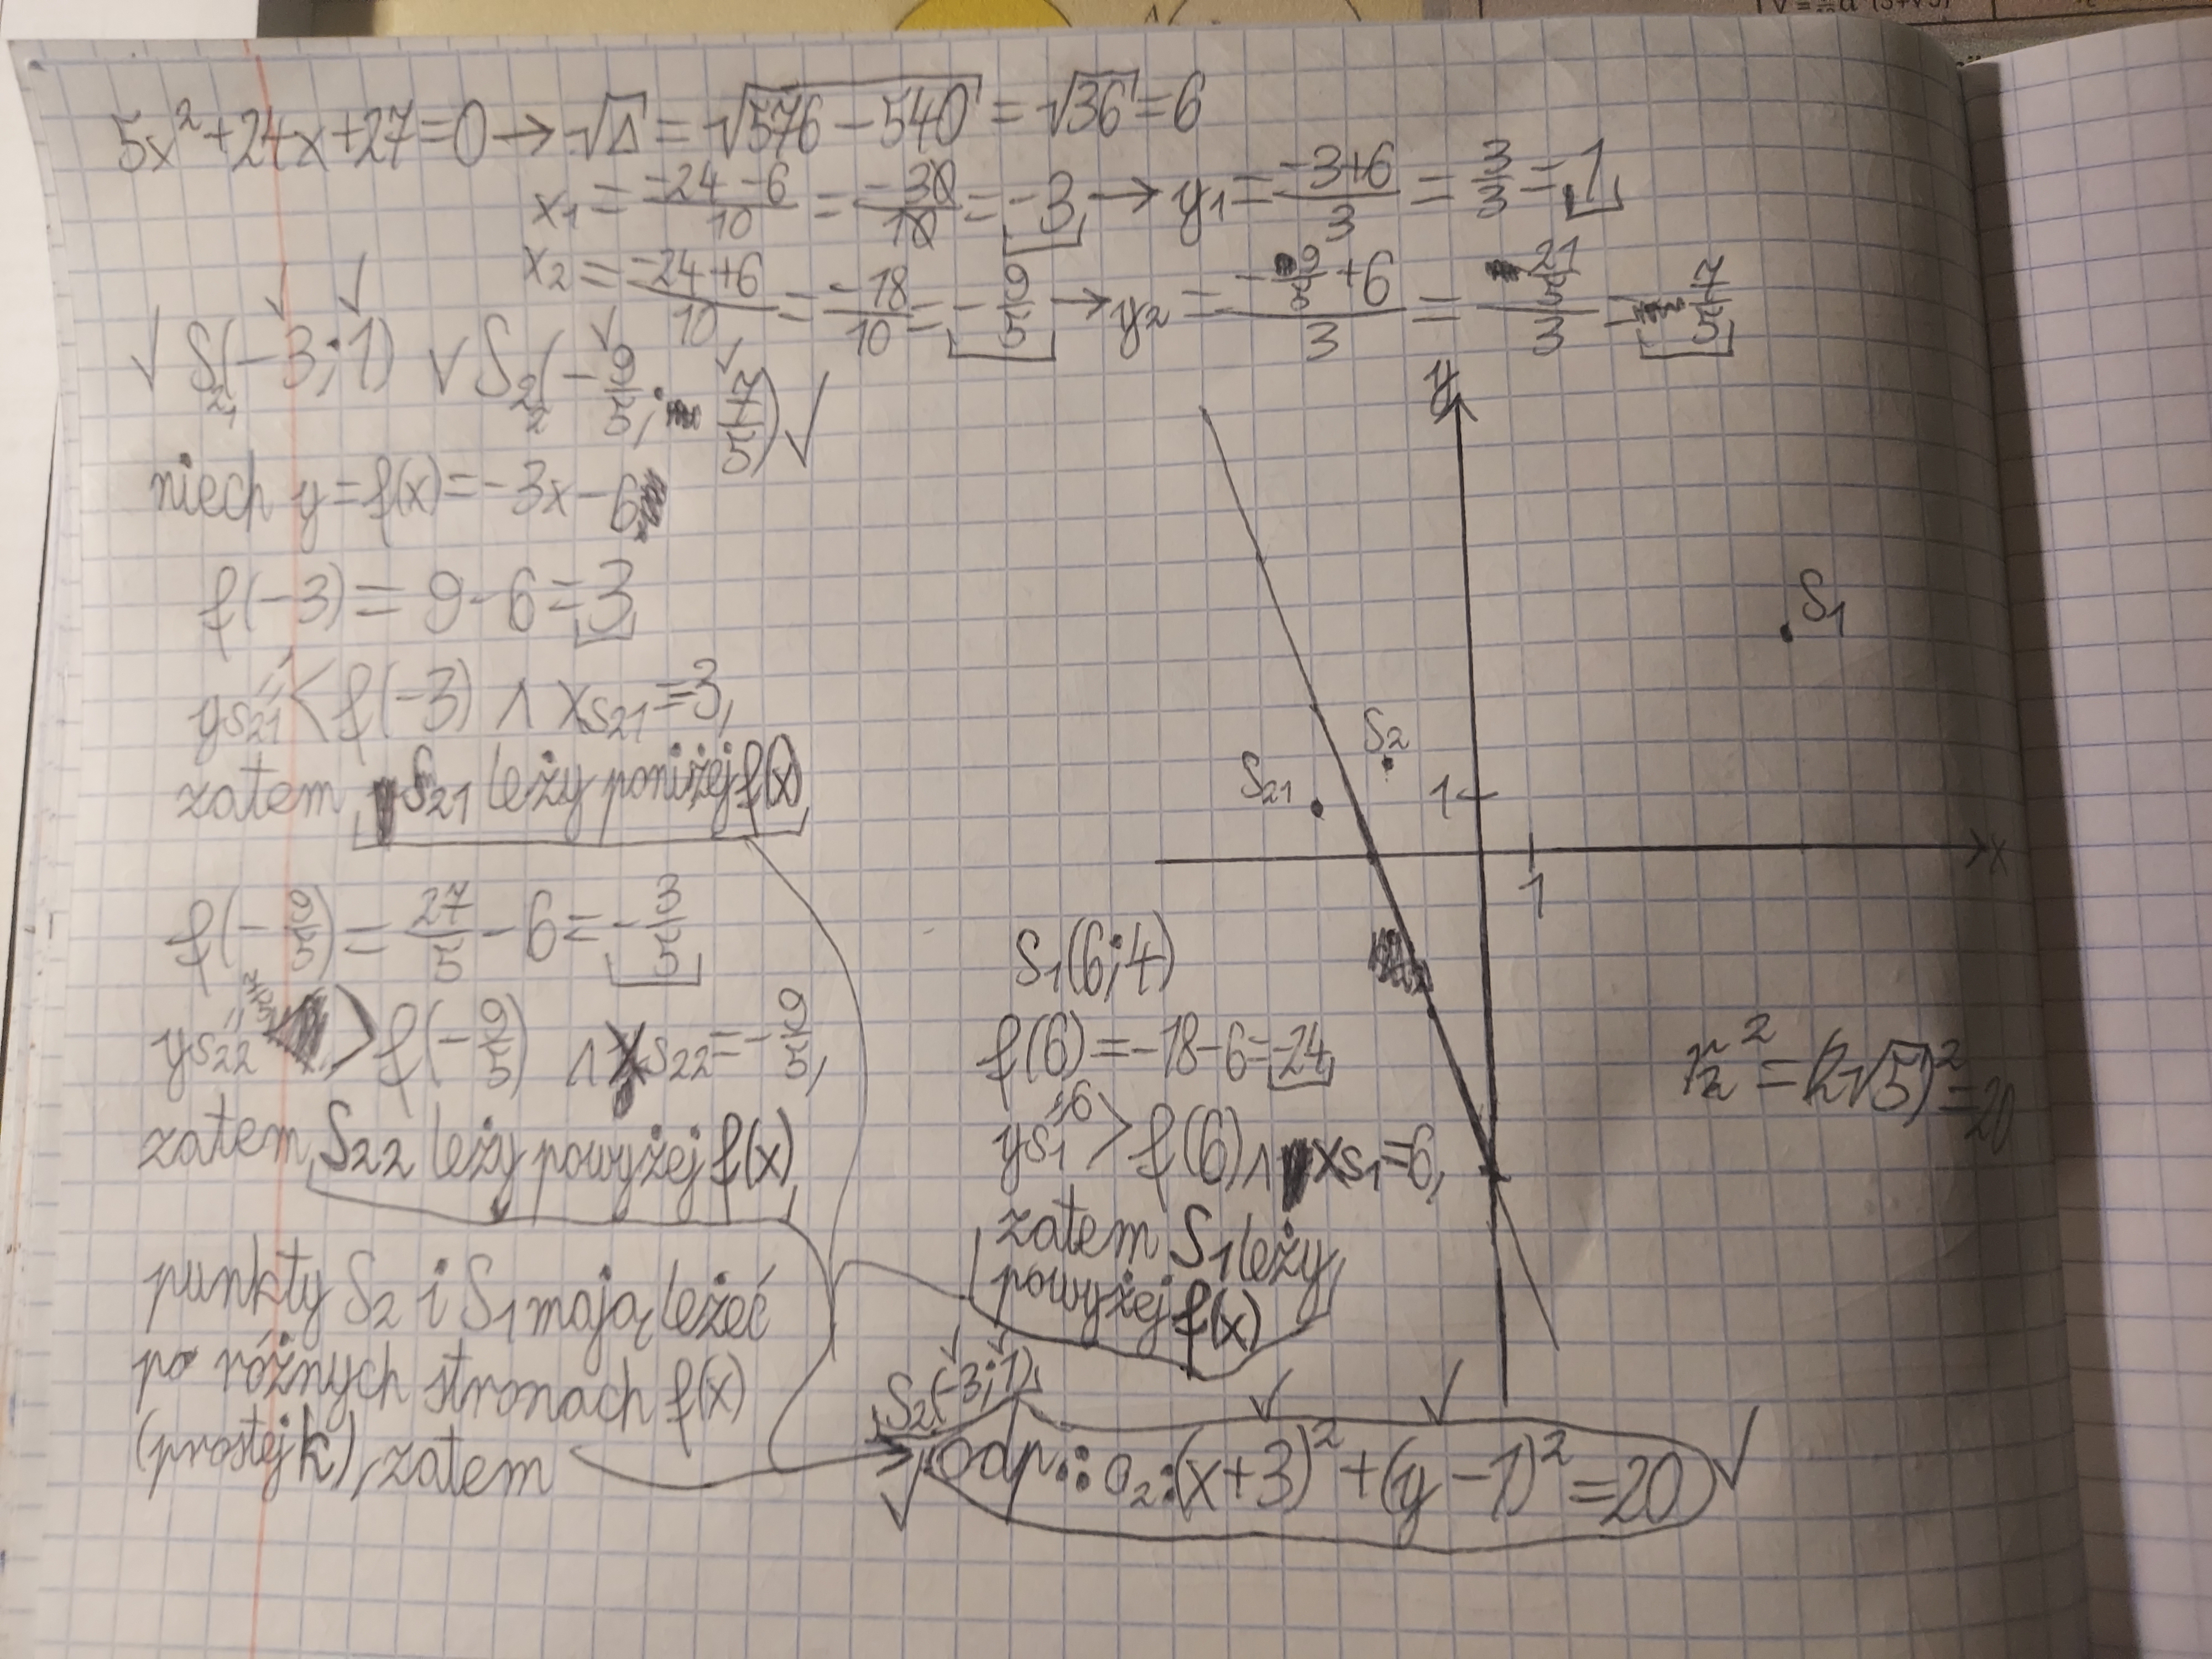 5x²+24x+27=0→√Δ = √576-540 = √36 = 6
x₁ = (-24-6)/10 = -30/10 = -3 → y₁ = (-3+6)/3 = 3/3 = 1
x₂ = (-24+6)/10 = -18/10 = -9/5 → y₂ = (-9/5+6)/3 = (21/5)/3 = 7/5
√ S₂₁(-3;1) ∨ S₂₂(-9/5; 7/5) √
niech y=f(x)=-3x-6
f(-3)= 9-6=3
1
yS₂₁ < f(-3) ∧ xS₂₁=3,
zatem S₂₁ leży poniżej f(x)
f(-9/5) = 27/5 - 6 = -3/5
7/5
yS₂₂ > f(-9/5) ∧ xS₂₂ = -9/5,
zatem S₂₂ leży powyżej f(x)
punkty S₂ i S₁ mają leżeć
po różnych stronach f(x)
(prostej k), zatem
y
S₁
S₂
S₂₁
1
x
1
S₁(6;4)
f(6)=-18-6=-24
6
yS₁ > f(6) ∧ xS₁=6,
zatem S₁ leży
powyżej f(x)
r₂² = (2√5)² = 20
S₂(-3;1)
odp.: o₂:(x+3)²+(y-1)²=20